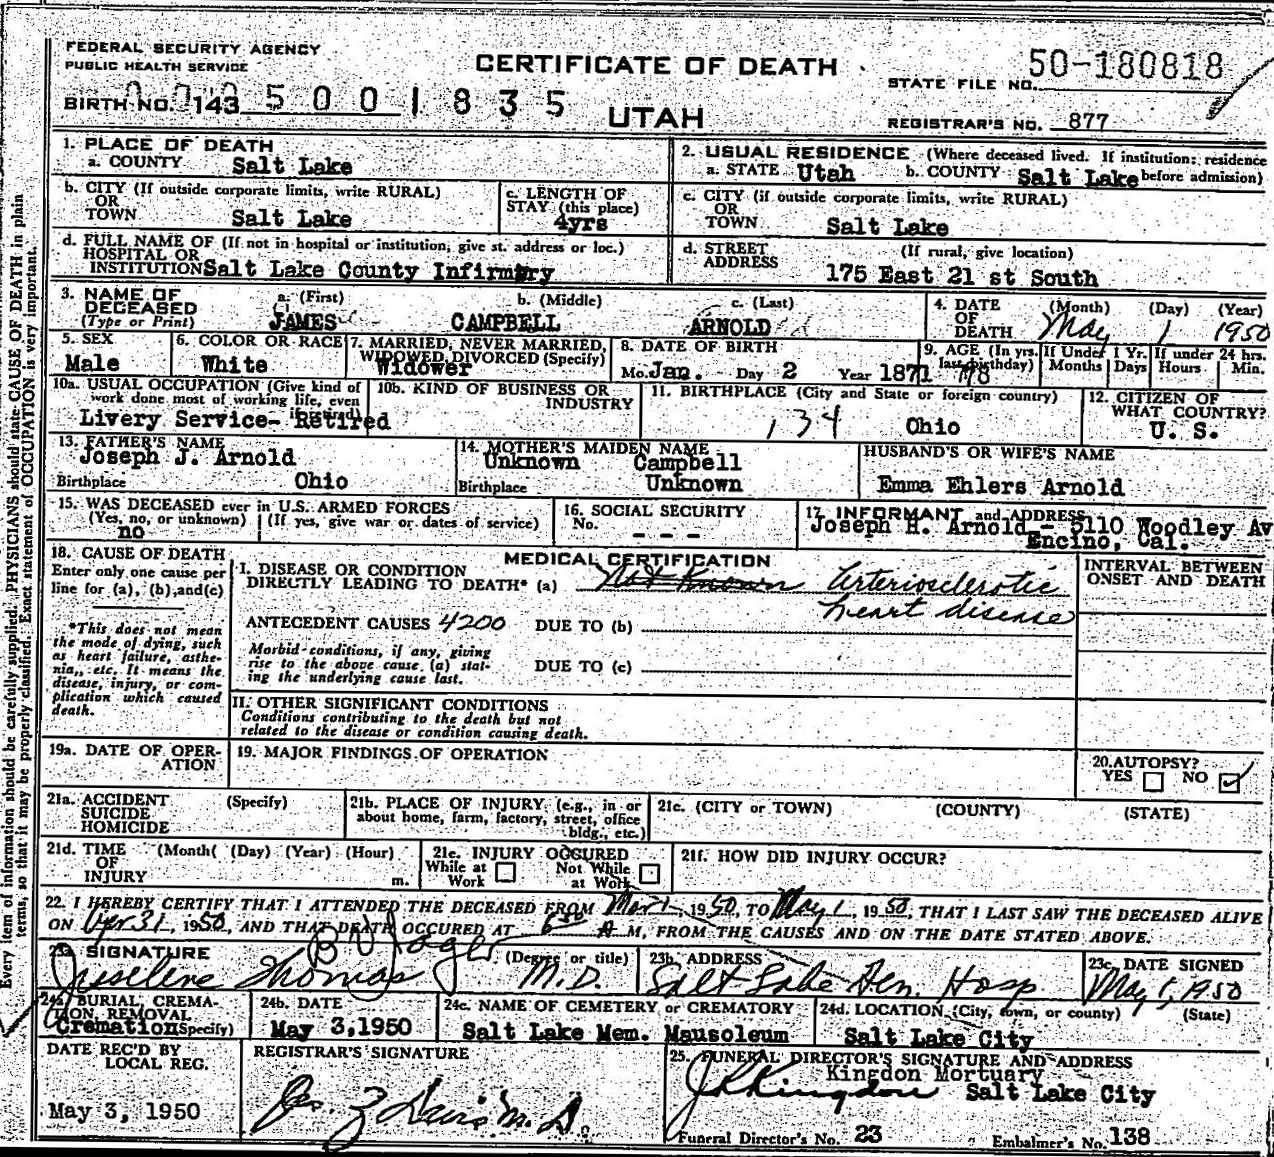 FEDERAL SECURITY AGENCY
PUBLIC HEALTH SERVICE
CERTIFICATE OF DEATH
STATE FILE NO. 50-180818
BIRTH NO. 143 5 0 0 1 8 3 5
UTAH
REGISTRAR'S NO. 877
Every item of information should be carefully supplied. PHYSICIANS should state CAUSE OF DEATH in plain
terms, so that it may be properly classified. Exact statement of OCCUPATION is very important.
1. PLACE OF DEATH
a. COUNTY Salt Lake
2. USUAL RESIDENCE (Where deceased lived. If institution: residence
a. STATE Utah b. COUNTY Salt Lake before admission)
b. CITY (If outside corporate limits, write RURAL)
OR
TOWN Salt Lake
c. LENGTH OF
STAY (this place)
4yrs
c. CITY (if outside corporate limits, write RURAL)
OR
TOWN Salt Lake
d. FULL NAME OF (If not in hospital or institution, give st. address or loc.)
HOSPITAL OR
INSTITUTION Salt Lake County Infirmary
d. STREET (If rural, give location)
ADDRESS
175 East 21 st South
3. NAME OF
DECEASED
(Type or Print)
a. (First) b. (Middle) c. (Last)
JAMES CAMPBELL ARNOLD
4. DATE (Month) (Day) (Year)
OF
DEATH May 1 1950
5. SEX
Male
6. COLOR OR RACE
White
7. MARRIED, NEVER MARRIED,
WIDOWED, DIVORCED (Specify)
Widower
8. DATE OF BIRTH
Mo. Jan. Day 2 Year 1871
9. AGE (In yrs. last birthday)
If Under 1 Yr. Months Days
If under 24 hrs. Hours Min.
10a. USUAL OCCUPATION (Give kind of
work done most of working life, even
if retired)
Livery Service- Retired
10b. KIND OF BUSINESS OR
INDUSTRY
11. BIRTHPLACE (City and State or foreign country)
134 Ohio
12. CITIZEN OF
WHAT COUNTRY?
U. S.
13. FATHER'S NAME
Joseph J. Arnold
Birthplace Ohio
14. MOTHER'S MAIDEN NAME
Unknown Campbell
Birthplace Unknown
HUSBAND'S OR WIFE'S NAME
Emma Ehlers Arnold
15. WAS DECEASED ever in U.S. ARMED FORCES
(Yes, no, or unknown) (If yes, give war or dates of service)
no
16. SOCIAL SECURITY
No.
- - -
17. INFORMANT and ADDRESS
Joseph H. Arnold - 5110 Woodley Av
Encino, Cal.
18. CAUSE OF DEATH
Enter only one cause per
line for (a), (b), and(c)
*This does not mean
the mode of dying, such
as heart failure, asthe-
nia, etc. It means the
disease, injury, or com-
plication which caused
death.
MEDICAL CERTIFICATION
I. DISEASE OR CONDITION
DIRECTLY LEADING TO DEATH* (a) Not Known Arteriosclerotic
heart disease
ANTECEDENT CAUSES 4200 DUE TO (b)
Morbid conditions, if any, giving
rise to the above cause (a) stat-
ing the underlying cause last.
DUE TO (c)
II. OTHER SIGNIFICANT CONDITIONS
Conditions contributing to the death but not
related to the disease or condition causing death.
INTERVAL BETWEEN
ONSET AND DEATH
19a. DATE OF OPER-
ATION
19. MAJOR FINDINGS OF OPERATION
20. AUTOPSY?
YES NO
21a. ACCIDENT (Specify)
SUICIDE
HOMICIDE
21b. PLACE OF INJURY (e.g., in or
about home, farm, factory, street, office
bldg., etc.)
21c. (CITY or TOWN) (COUNTY) (STATE)
21d. TIME (Month( (Day) (Year) (Hour)
OF
INJURY m.
21e. INJURY OCCURED
While at Not While
Work at Work
21f. HOW DID INJURY OCCUR?
22. I HEREBY CERTIFY THAT I ATTENDED THE DECEASED FROM Mar 1, 1950, TO May 1, 1950, THAT I LAST SAW THE DECEASED ALIVE
ON Apr 31, 1950, AND THAT DEATH OCCURED AT 6 30 A M, FROM THE CAUSES AND ON THE DATE STATED ABOVE.
23a. SIGNATURE (Degree or title)
Thomas M.D.
23b. ADDRESS
Salt Lake Gen. Hosp
23c. DATE SIGNED
May 1, 1950
24a. BURIAL, CREMA-
TION, REMOVAL
Cremation (Specify)
24b. DATE
May 3,1950
24c. NAME OF CEMETERY or CREMATORY
Salt Lake Mem. Mausoleum
24d. LOCATION (City, town, or county) (State)
Salt Lake City
DATE REC'D BY
LOCAL REG.
May 3, 1950
REGISTRAR'S SIGNATURE
Davis M. D.
25. FUNERAL DIRECTOR'S SIGNATURE AND ADDRESS
Kingdon Mortuary
Kingdon Salt Lake City
Funeral Director's No. 23 Embalmer's No. 138